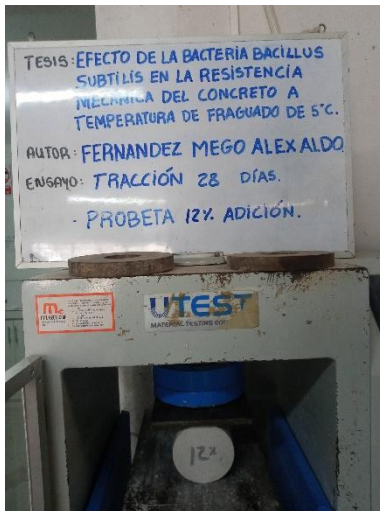 TESIS: EFECTO DE LA BACTERIA BACILLUS
SUBTILIS EN LA RESISTENCIA
MECÁNICA DEL CONCRETO A
TEMPERATURA DE FRAGUADO DE 5°C.
AUTOR: FERNANDEZ MEGO ALEX ALDO
ENSAYO: TRACCIÓN 28 DÍAS.
- PROBETA 12% ADICIÓN.
UTEST
MATERIAL TESTING
12%